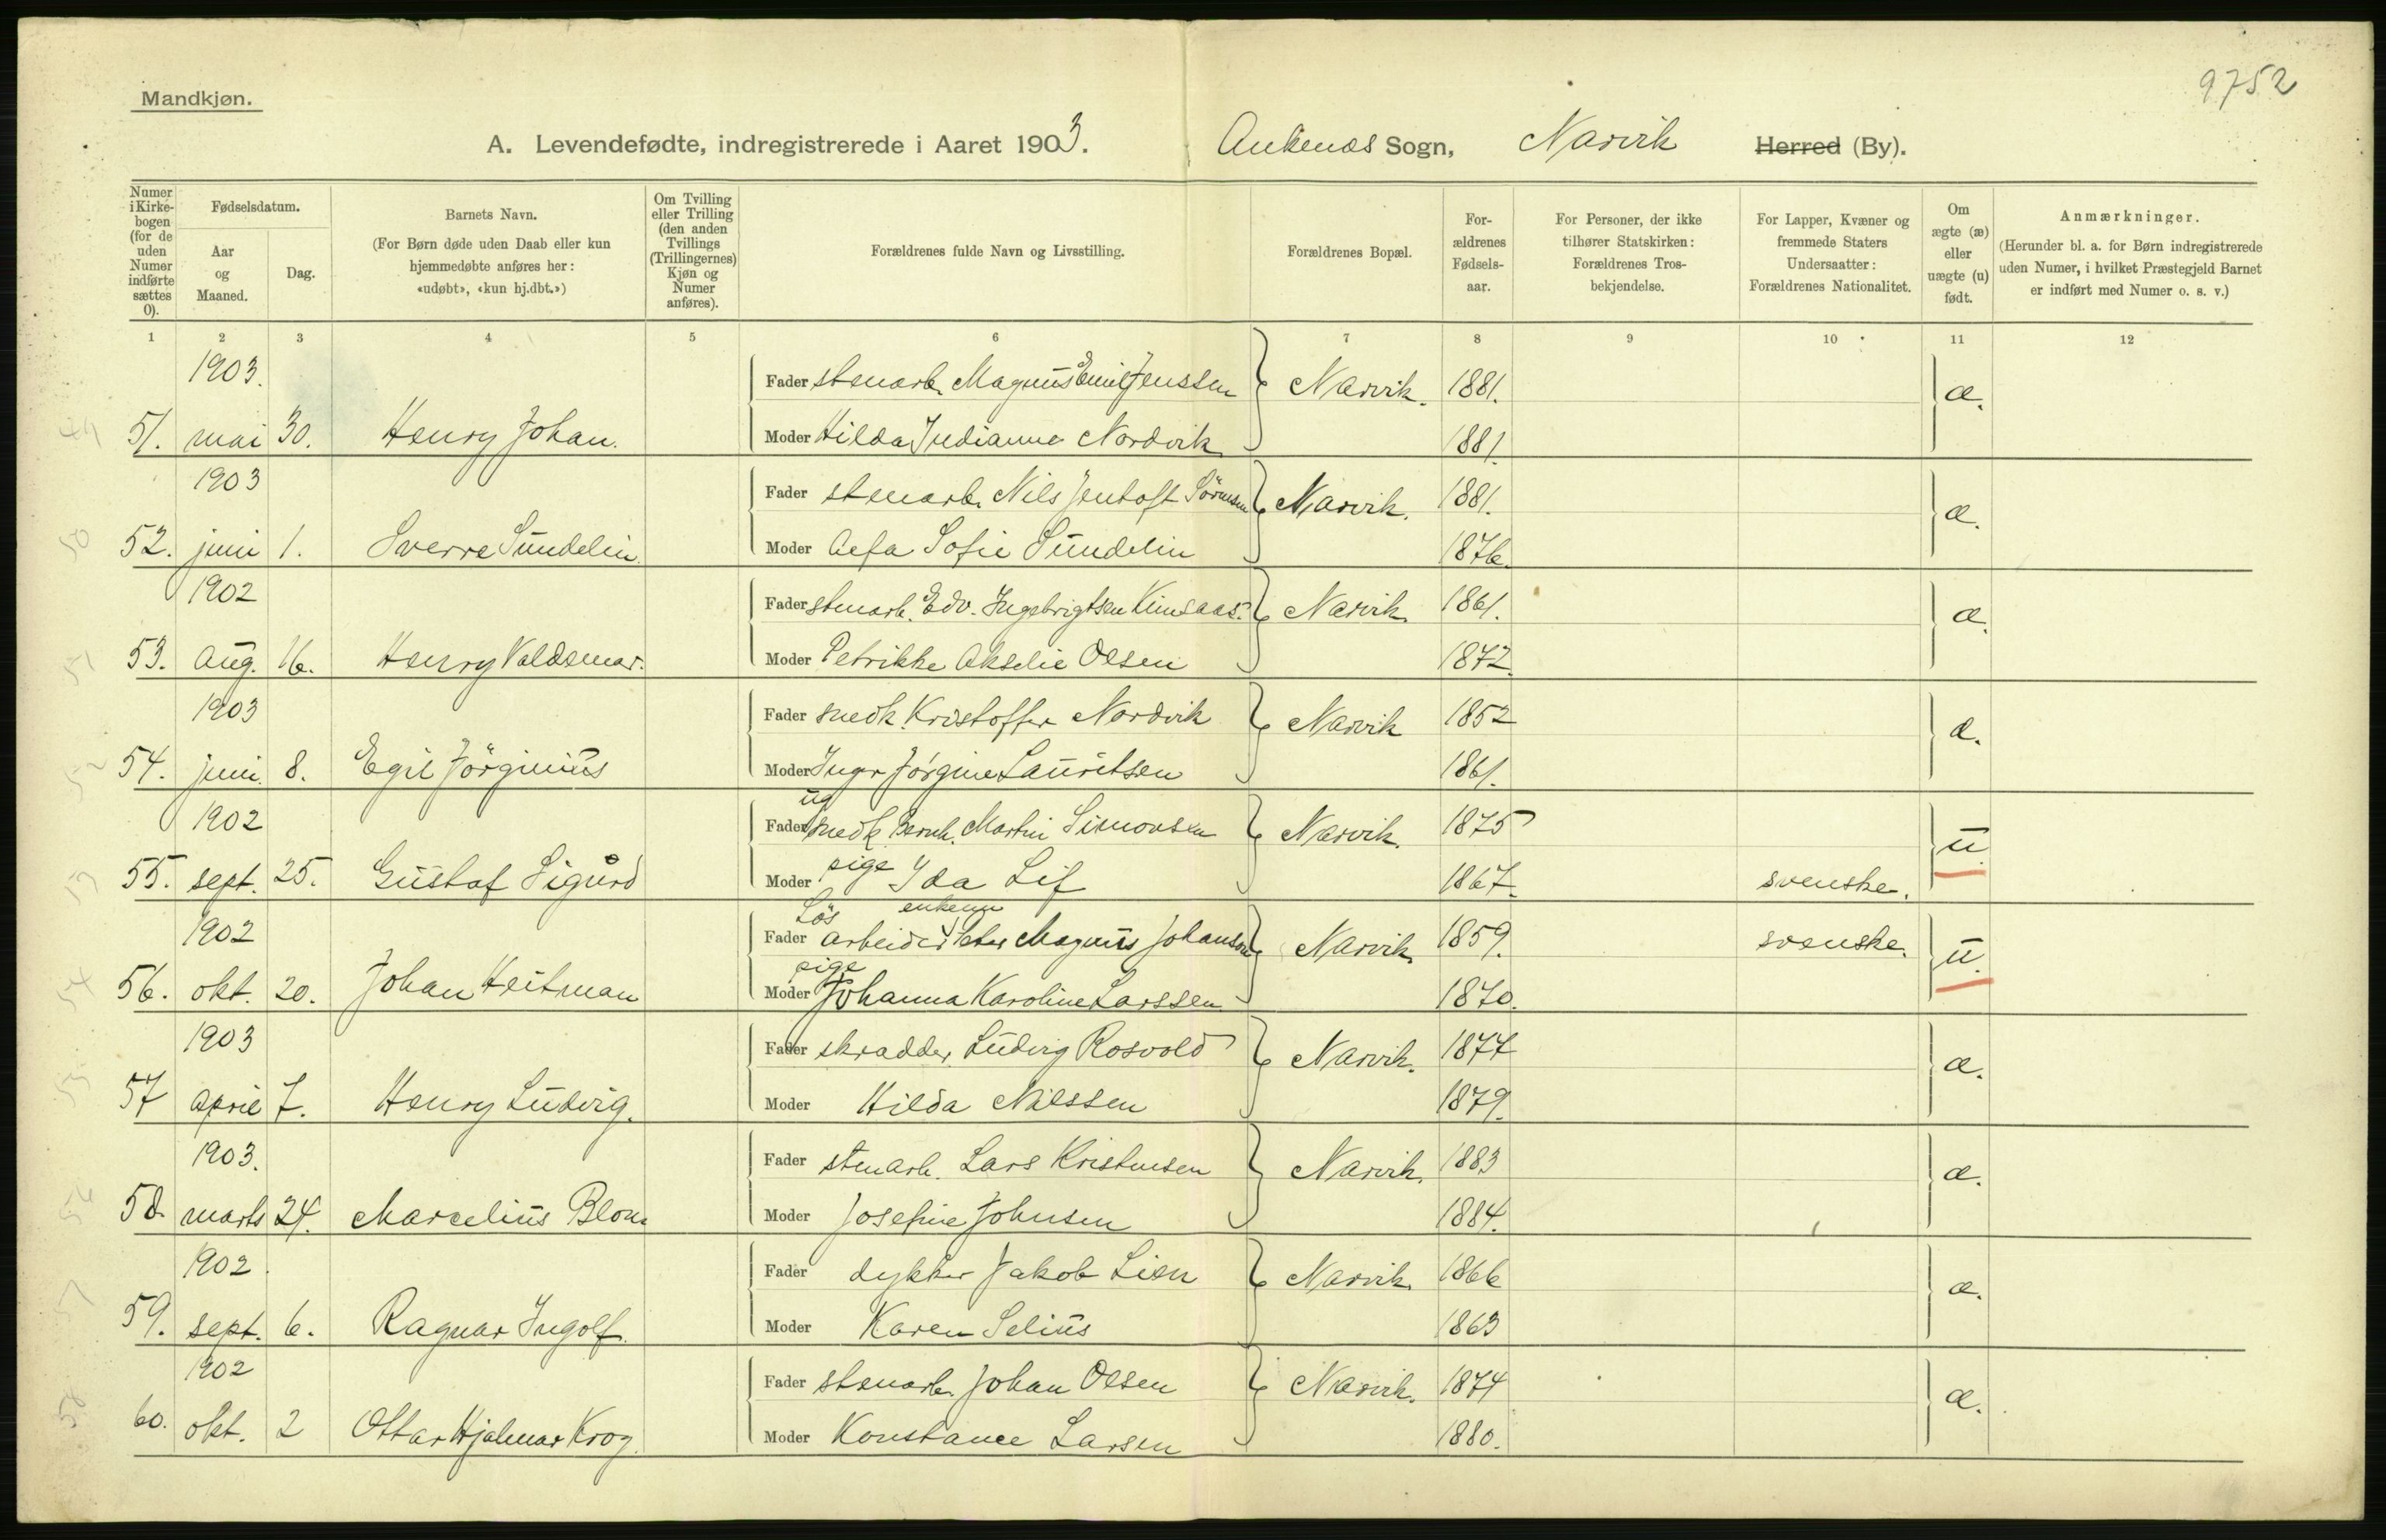 9752
Mandkjøn.
A. Levendefødte, indregistrerede i Aaret 1903. Ankenæs Sogn, Narvik Herred (By).
Numer i Kirkebogen (for de uden Numer indførte sættes 0).
Fødselsdatum.
Aar og Maaned.
Dag.
Barnets Navn.
(For Børn døde uden Daab eller kun hjemmedøbte anføres her: «udøbt», «kun hj.dbt.»)
Om Tvilling eller Trilling (den anden Tvillings (Trillingernes) Kjøn og Numer anføres).
Forældrenes fulde Navn og Livsstilling.
Forældrenes Bopæl.
Forældrenes Fødselsaar.
For Personer, der ikke tilhører Statskirken: Forældrenes Trosbekjendelse.
For Lapper, Kvæner og fremmede Staters Undersaatter: Forældrenes Nationalitet.
Om ægte (æ) eller uægte (u) født.
Anmærkninger.
(Herunder bl. a. for Børn indregistrerede uden Numer, i hvilket Præstegjeld Barnet er indført med Numer o. s. v.)
1 2 3 4 5 6 7 8 9 10 11 12
1903. Fader stenarb. Magnus Emil Jenssen Narvik. 1881. æ.
49 51. mai 30. Henry Johan. Moder Hilda Indianne Nordvik 1881.
1903 Fader stenarb. Nils Jentoft Sörensen Narvik. 1881. æ.
50 52. juni 1. Sverre Sundelin. Moder Sofie Sundelin 1876.
1902 Fader stenarb. Edv. Ingebrigtsen Narvik. 1861. æ.
51 53. aug. 16. Henry Valdemar. Moder Petrikke Akselie Olsen 1872.
1903 Fader snedk. Kristoffer Nordvik Narvik 1852 æ.
52 54. juni. 8. Egil Jörginius Moder Inger Jörgine Lauritsen 1861.
1902 Fader ug snedk. Bernh. Martin Simonsen Narvik. 1875 u
53 55. sept. 25. Gustaf Sigurd Moder pige Ida Lif 1867. svenske.
1902 Fader Lös arbeider enkem Peter Magnus Johanson Narvik. 1859. svenske. u.
54 56. okt. 20. Johan Heitman Moder pige Johanna Karoline Larssen 1870.
1903 Fader skrædder Ludvig Rosvold Narvik. 1877 æ.
55 57 april 7. Henry Ludvig. Moder Hilda Nilssen 1879.
1903. Fader stenarb. Lars Kristensen Narvik. 1883 æ.
56 58. marts 24. Marcelius Blom Moder Josefine Johnsen 1884.
1902. Fader dykker Jakob Lien Narvik. 1866 æ.
57 59. sept. 6. Ragnar Ingolf. Moder Karen Selius 1863
1902 Fader stenarb. Johan Olsen Narvik. 1874 æ.
58 60. okt. 2 Ottar Hjalmar Krog. Moder Konstance Larsen 1880.